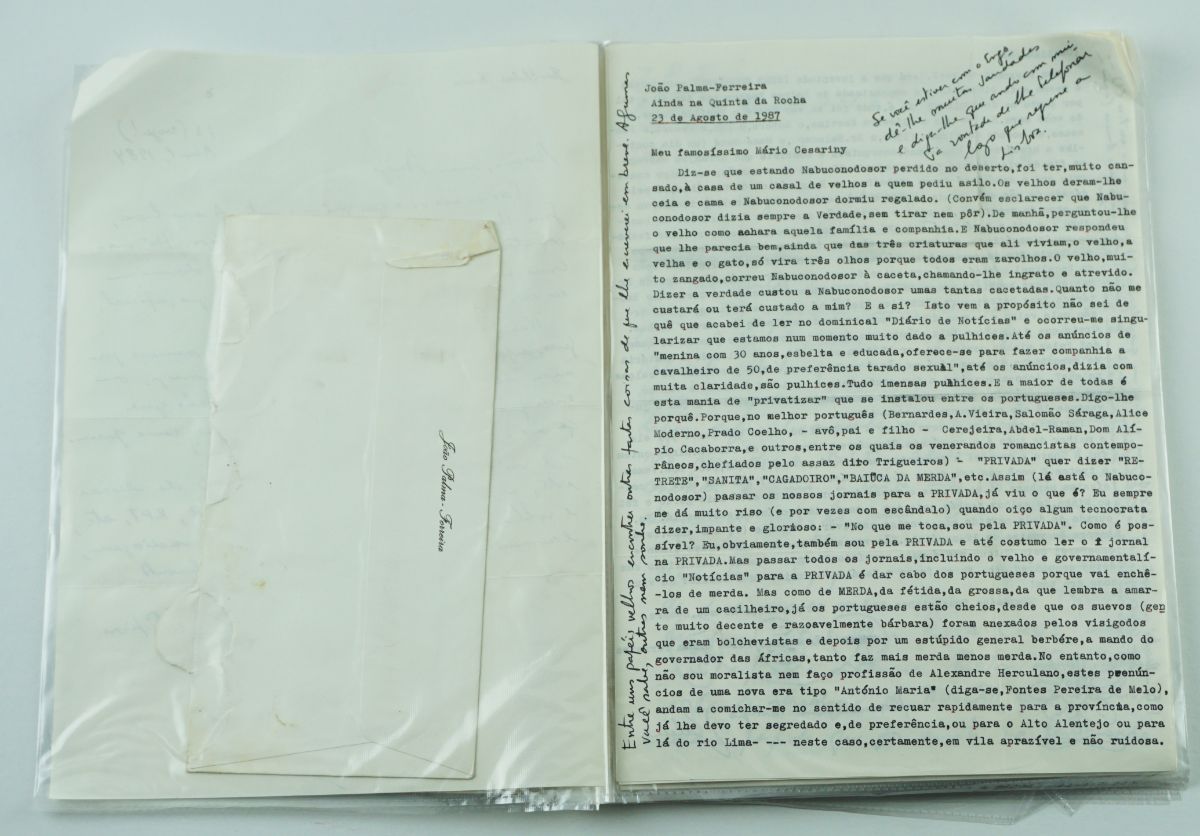 João Palma-Ferreira
João Palma-Ferreira
Ainda na Quinta da Rocha
23 de Agosto de 1987
Se você estiver com o
dê-lhe muitas saudades
e diga-lhe que ando com mui
ta vontade de lhe telefonar
logo que regresse a
Lisboa.
Meu famosíssimo Mário Cesariny
Diz-se que estando Nabuconodosor perdido no deserto,foi ter,muito can-
sado,à casa de um casal de velhos a quem pediu asilo.Os velhos deram-lhe
ceia e cama e Nabuconodosor dormiu regalado. (Convém esclarecer que Nabu-
conodosor dizia sempre a Verdade,sem tirar nem pôr).De manhã,perguntou-lhe
o velho como achara aquela família e companhia.E Nabuconodosor respondeu
que lhe parecia bem,ainda que das três criaturas que ali viviam,o velho,a
velha e o gato,só vira três olhos porque todos eram zarolhos.O velho,mui-
to zangado,correu Nabuconodosor à caceta,chamando-lhe ingrato e atrevido.
Dizer a verdade custou a Nabuconodosor umas tantas cacetadas.Quanto não me
custará ou terá custado a mim? E a si? Isto vem a propósito não sei de
quê que acabei de ler no dominical "Diário de Notícias" e ocorreu-me singu-
larizar que estamos num momento muito dado a pulhices.Até os anúncios de
"menina com 30 anos,esbelta e educada,oferece-se para fazer companhia a
cavalheiro de 50,de preferência tarado sexual",até os anúncios,dizia com
muita claridade,são pulhices.Tudo imensas pulhices.E a maior de todas é
esta mania de "privatizar" que se instalou entre os portugueses.Digo-lhe
porquê.Porque,no melhor português (Bernardes,A.Vieira,Salomão Sáraga,Alice
Moderno,Prado Coelho, - avô,pai e filho - Cerejeira,Abdel-Raman,Dom Alí-
pio Cacaborra,e outros,entre os quais os venerandos romancistas contempo-
râneos,chefiados pelo assaz dito Trigueiros) - "PRIVADA" quer dizer "RE-
TRETE","SANITA","CAGADOIRO","BAIÚCA DA MERDA",etc.Assim (lá está o Nabuco-
nodosor) passar os nossos jornais para a PRIVADA,já viu o que é? Eu sempre
me dá muito riso (e por vezes com escândalo) quando oiço algum tecnocrata
dizer,impante e glorioso: - "No que me toca,sou pela PRIVADA". Como é pos-
sível? Eu,obviamente,também sou pela PRIVADA e até costumo ler o jornal
na PRIVADA.Mas passar todos os jornais,incluindo o velho e governamentalí-
cio "Notícias" para a PRIVADA é dar cabo dos portugueses porque vai enchê-
-los de merda. Mas como de MERDA,da fétida,da grossa,da que lembra a amar-
ra de um cacilheiro,já os portugueses estão cheios,desde que os suevos (gen
te muito decente e razoavelmente bárbara) foram anexados pelos visigodos
que eram bolchevistas e depois por um estúpido general berbére,a mando do
governador das Áfricas,tanto faz mais merda menos merda.No entanto,como
não sou moralista nem faço profissão de Alexandre Herculano,estes prenún-
cios de uma nova era tipo "António Maria" (diga-se,Fontes Pereira de Melo),
andam a comichar-me no sentido de recuar rapidamente para a província,como
já lhe devo ter segredado e,de preferência,ou para o Alto Alentejo ou para
lá do rio Lima- --- neste caso,certamente,em vila aprazível e não ruidosa.
Entre uns papéis velhos encontrei outras tantas coisas de que lhe escreverei em breve. Algumas
você sabe, outras nem sonha.